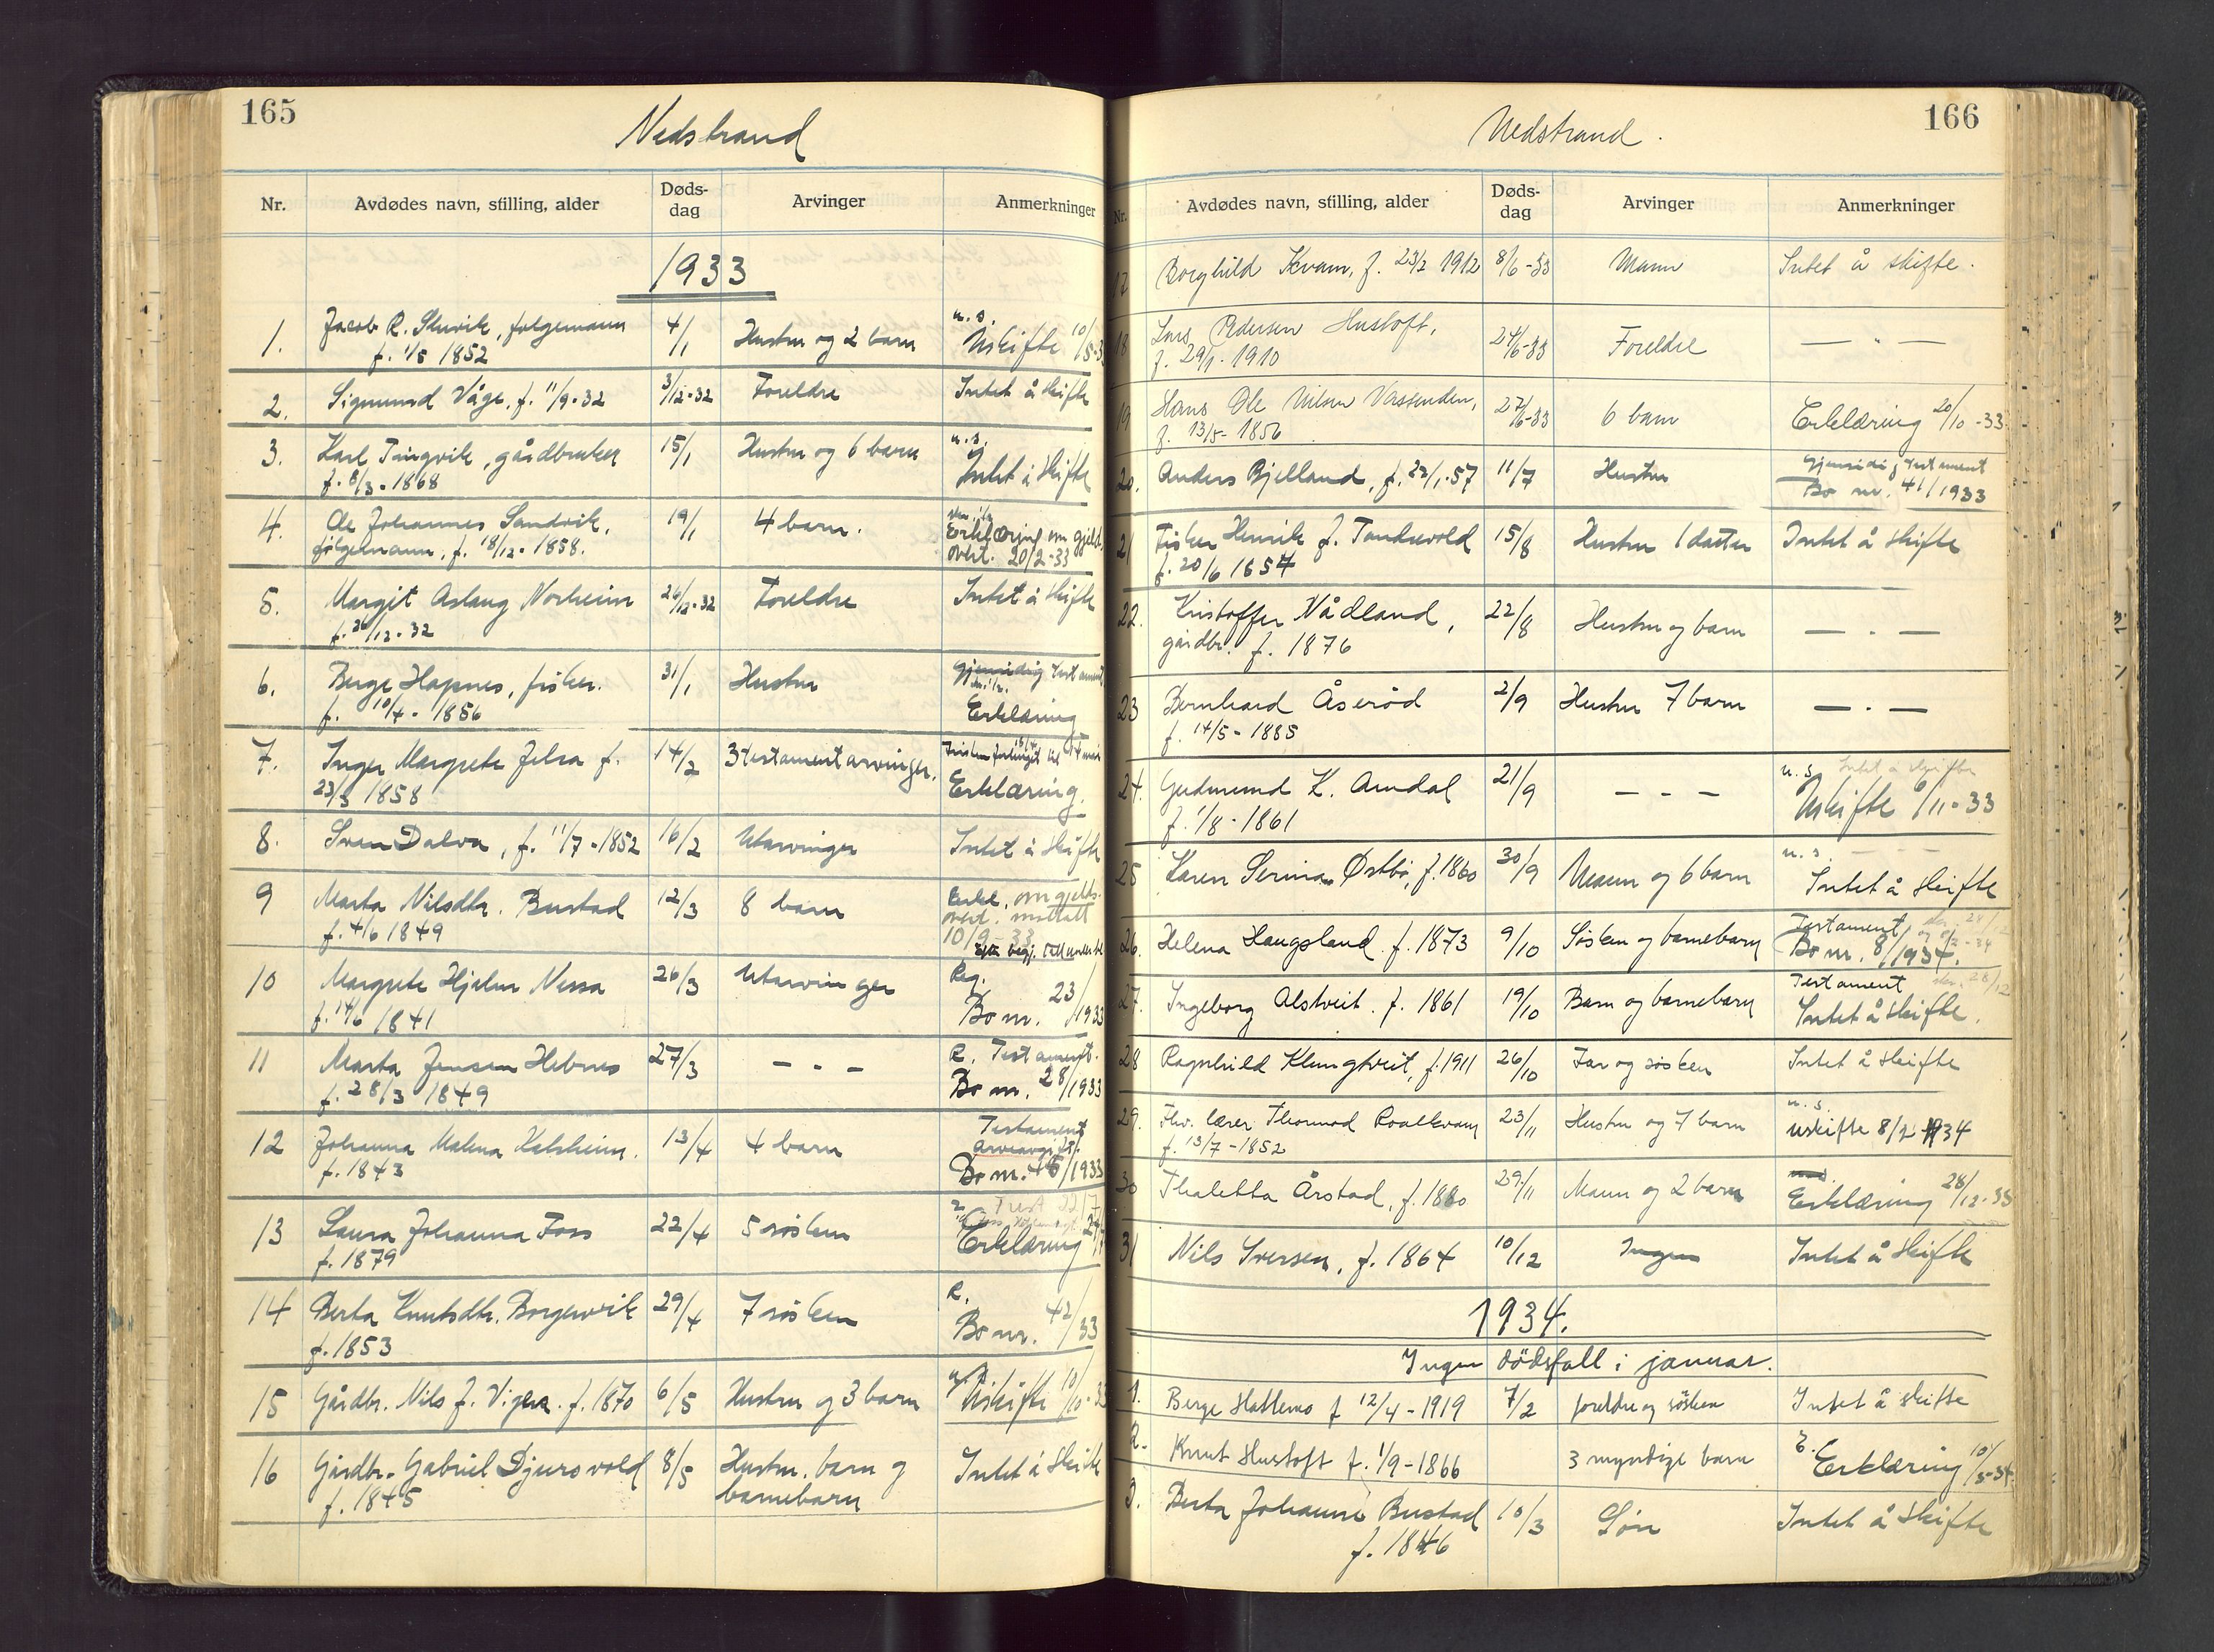 165
Nedstrand
Nr. Avdødes navn, stilling, alder Døds-dag Arvinger Anmerkninger
1933
1. Jacob R. Sluvik, følgemann 4/1 Hustru og 2 barn u. s. Uskifte 10/5-3
f. 1/5 1852
2. Sigmund Våge, f. 11/9-32 3/12-32 Foreldre Intet å skifte
3. Karl Tingvik, gårdbruker 15/1 Hustru og 6 barn u. s. Intet å skifte
f. 8/3-1868
4. Ole Johannes Sandvik, 19/1 4 barn. Erklæring om gjeld
følgemann, f. 18/12-1858. overt. 20/2-33
5. Margit Aslaug Norheim 26/12-32 Foreldre Intet å skifte
f. 26/12-32
6. Berge Hapnes, fisker. 31/1 Hustru Gjensidig testament
f. 10/4-1856 Erklæring
7. Inger Margrete Jelsa f. 14/2 3 testamentarvinger. Fristen forlenget til
23/3 1858 Erklæring.
8. Sven Dalva, f. 11/7-1852 16/2 Utarvinger Intet å skifte
9 Marta Nilsdtr. Bustad 12/3 8 barn Erkl. om gjelds-
f. 4/6 1849 overt. mottatt
10/9-33
10 Margrete Hjelm Nessa 26/3 Utarvinger Reg.
f. 14/6 1841 Bo nr. 23/1933
11 Marta Jensen Hebnes 27/3 - . - R. Testament.
f. 28/3 1849 Bo nr. 28/1933
12 Johanna Malena Halsheim. 13/4 4 barn Testament
f. 1843 Arveavgift.
Bo nr. 45/1933
13 Laura Johanna Foss 22/4 5 søsken Test 22/7
f. 1879 Erklæring
14 Berta Knutsdtr. Borgenvik 29/4 7 søsken R.
f. 1853 Bo nr. 42/33
15 Gårdbr. Nils J. Viger. f. 1870 6/5 Hustru og 3 barn u. s. Uskifte 10/10-33
16 Gårdbr. Gabriel Djursvold 8/5 Hustru, barn og Intet å skifte
f. 1845 barnebarn
166
Nedstrand.
Nr. Avdødes navn, stilling, alder Døds-dag Arvinger Anmerkninger
17 Borghild Kvam, f. 23/2 1912 8/6-33 Mann Intet å skifte.
18 Lars Pedersen Hustoft, 24/6-33 Foreldre — " —
f. 29/1-1910
19 Hans Ole Nilsen Vassenden, 27/6-33 6 barn Erklæring 20/10-33
f. 13/5-1856
20. Anders Bjelland, f. 22/1-57 11/7 Hustru Gjensidig testament
Bo nr. 41/1933
21 Fisker Henrik J. Tandrevold 15/8 Hustru 1 datter Intet å skifte
f. 20/6 1854
22. Kristoffer Nådland, 22/8 Hustru og barn — . —
gårdbr. f. 1876
23 Bernhard Åserød 2/9 Hustru 7 barn — . —
f. 14/5-1885
24. Gudmund K. Amdal 21/9 - - - u. s. Intet å skifte
f. 1/8-1861 Uskifte 6/11-33
25 Karen Serina Østbø, f. 1860 30/9 Mann og 6 barn u. s.
Intet å skifte
26. Helena Haugsland. f. 1873 9/10 Søsken og barnebarn Testament
Bo nr. 8/1934.
27. Ingeborg Alstveit. f. 1861 19/10 Barn og barnebarn Testament
Intet å skifte.
28 Ragnhild Klungtveit, f. 1911 26/10 Far og søsken Intet å skifte
29. Fhv. lærer Thormod Roalkvam 23/11 Hustru og 7 barn u. s.
f. 13/7-1852 uskifte 8/2 1934
30 Thaletta Årstad, f. 1880 29/11 Mann og 2 barn Erklæring 28/12-33
31 Nils Iversen, f. 1864 10/12 Ingen Intet å skifte
1934.
Ingen dödsfall i januar.
1. Berge Hattemo f 12/4-1919 7/2 foreldre og søsken Intet å skifte
2. Knut Hustoft f. 1/9-1866 3 myndige barn Erklæring 10/3-34
3. Berta Johanne Bustad 10/3 Søn Intet å skifte
f. 1846